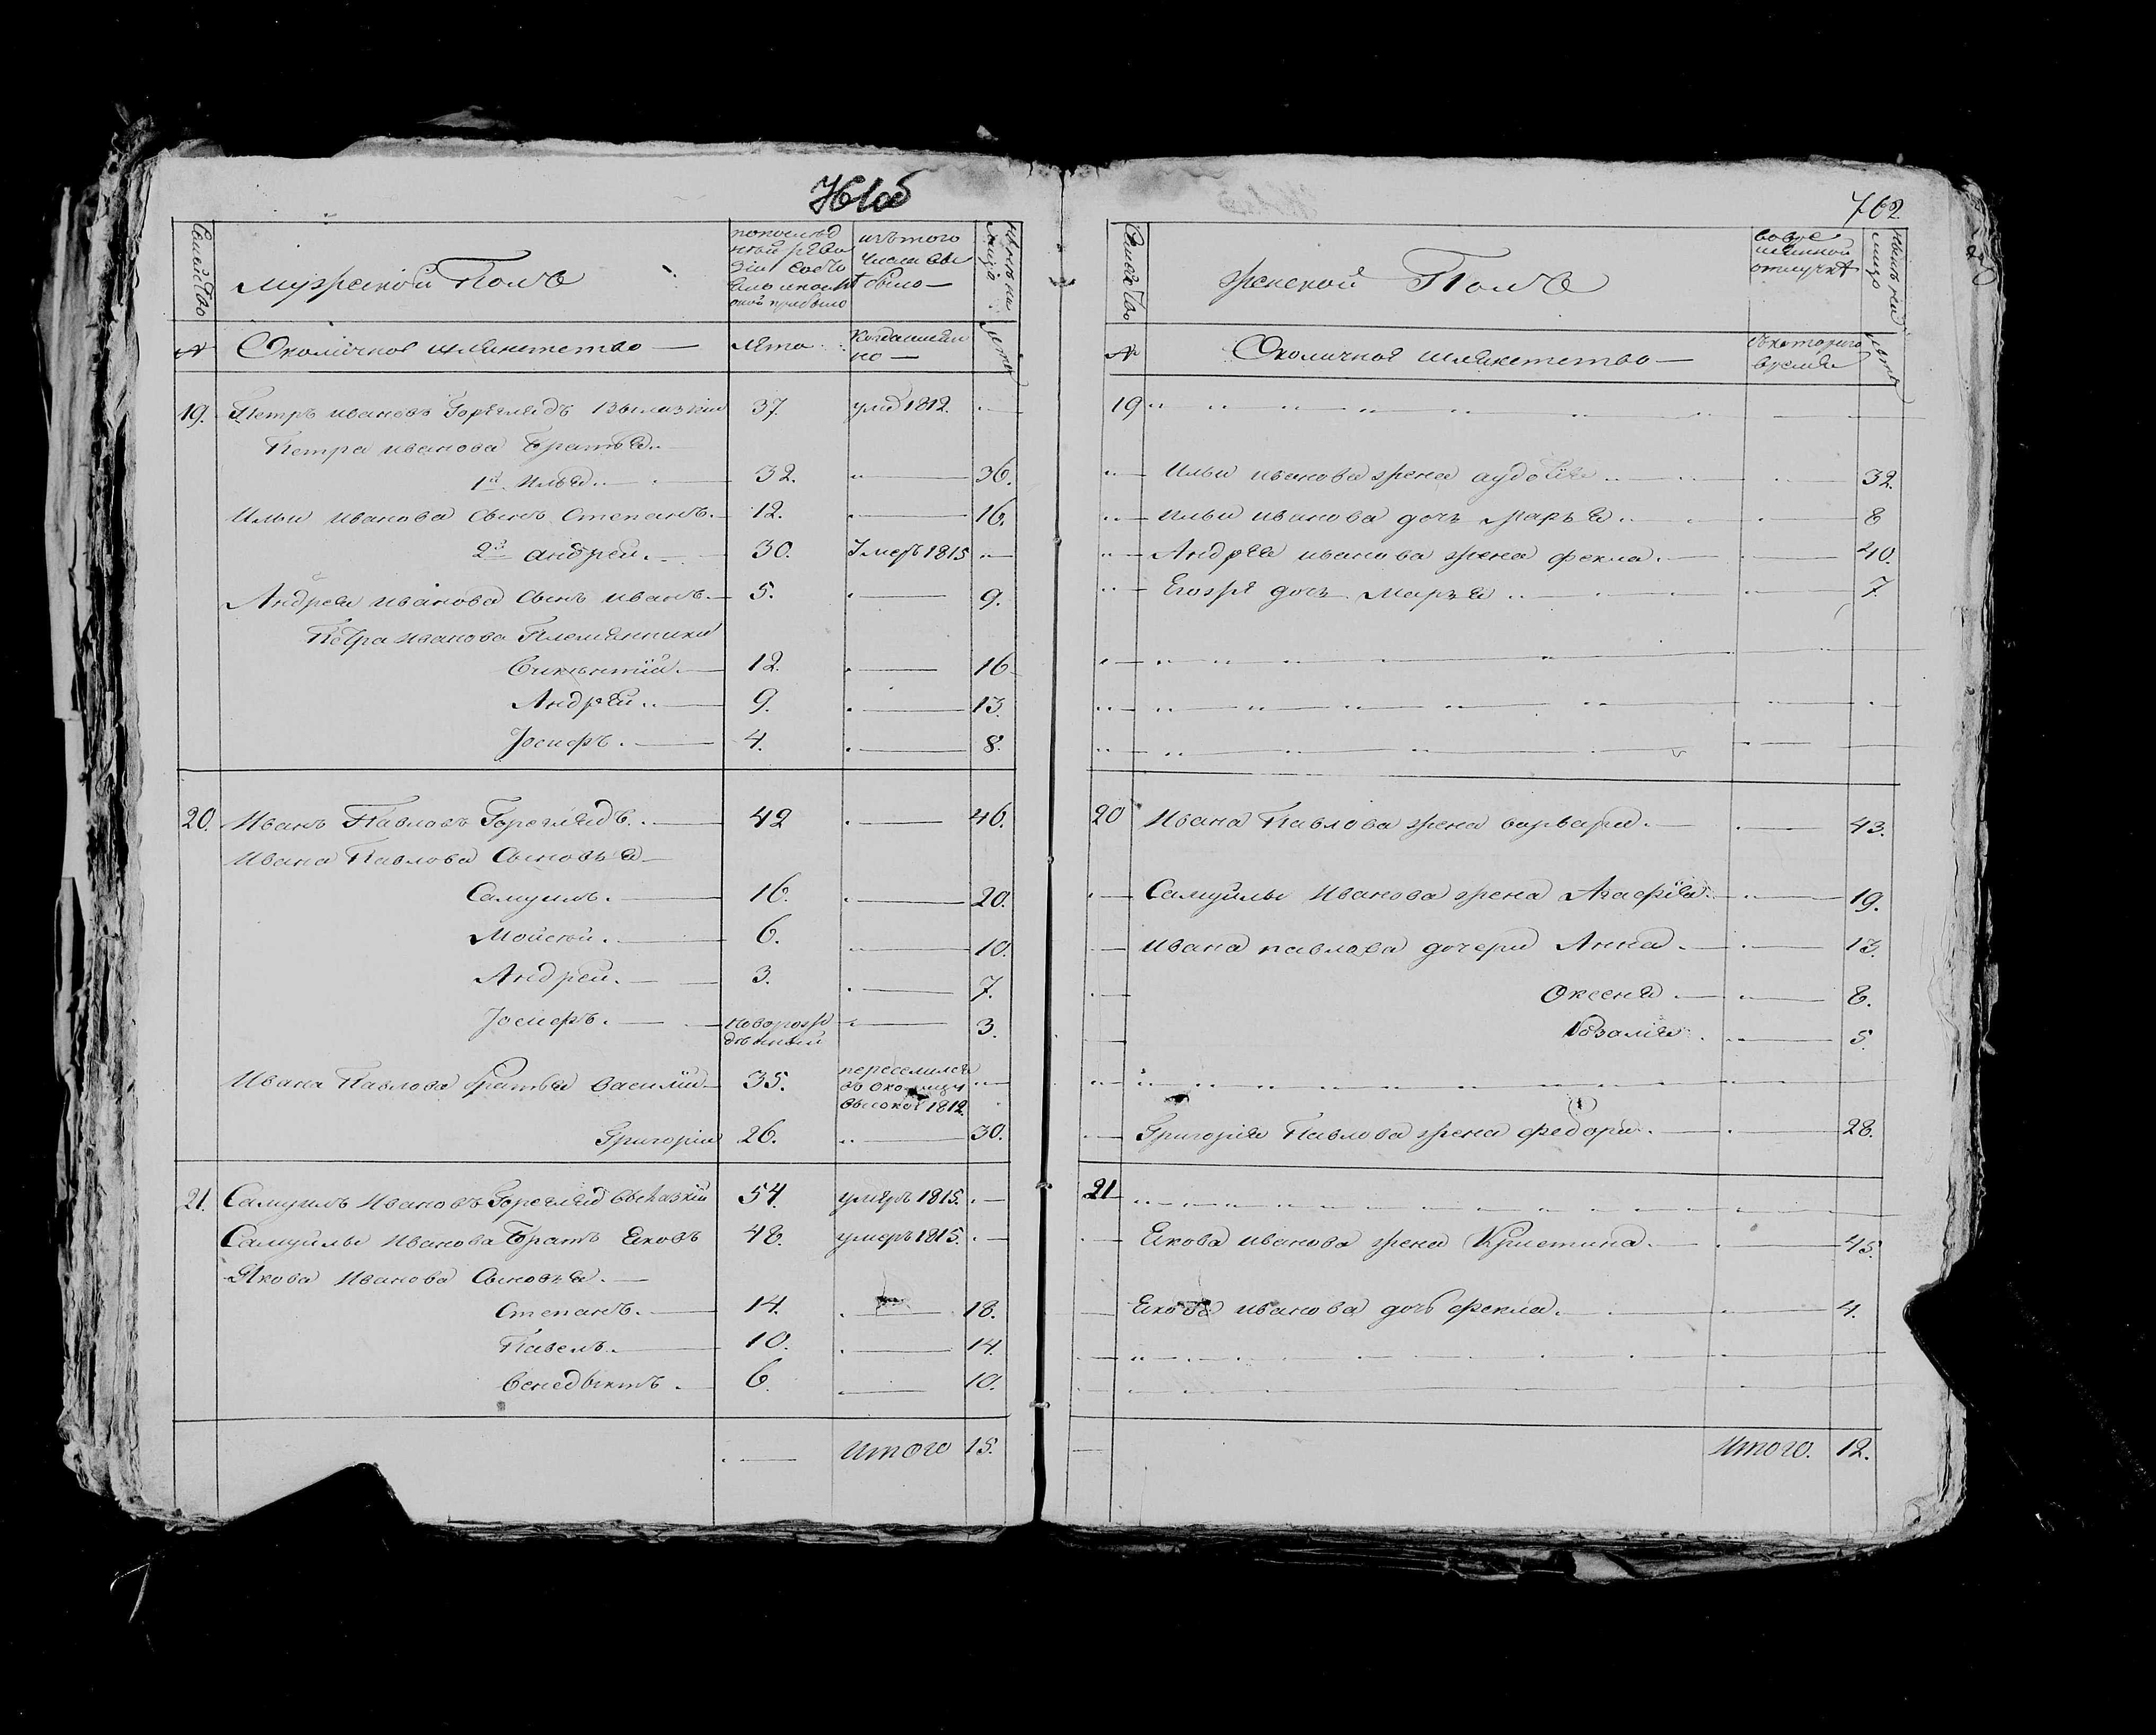 762
Семейство
мужеской Полъ
по последней ревизіи состояло и после оной прибыло
изъ того числа выбыло
ныне на лицо
№
Околичное шляхетство
лета
Когда именно
лета
19. Петръ ивановъ Гореглядъ 37. умер 1812.
Петра иванова Братья
1й Илья 32. 36.
Ильи иванова сынъ Степанъ 12. 16.
2й андрей 30. Умеръ 1815
Андрея иванова сынъ иванъ 5. 9.
Петра иванова Племянники
Викентій 12. 16
Андрей 9. 13.
Іосифъ 4. 8.
20. Иванъ Павловъ Гореглядъ 42 46.
Ивана Павлова Сыновья
Самуилъ 16. 20.
Мойсей 6. 10.
Андрей 3. 7.
Іосифъ новорожденный 3.
Ивана Павлова братья василій 35. переселился въ околицу высокое 1812.
Григорій 26. 30.
21. Самуилъ Ивановъ Гореглядъ 54. умеръ 1815.
Самуйлы Иванова Братъ Яковъ 48. умеръ 1815.
Якова Иванова Сыновья
Степанъ 14. 18.
Павелъ 10. 14.
венедыктъ 6. 10.
итого 15.
Семейство
женской Полъ
во временной отлучке
ныне на лицо
№
Околичное шляхетство
съ которого времени
лета
19
Ильи иванова жена аудотия 32.
Ильи иванова дочь Марья 8
Андрея иванова жена фекла 40.
Егожъ дочь Марья 7.
20 Ивана Павлова жена варвара 43.
Самуйлы Иванова жена Агафія 19.
ивана павлова дочери Анна 13.
Оксеня 8.
Розалія 5.
Григорія Павлова жена федора 28.
21
Якова иванова жена Кристина 45.
Якова иванова дочь фекла 4.
Итого. 12.